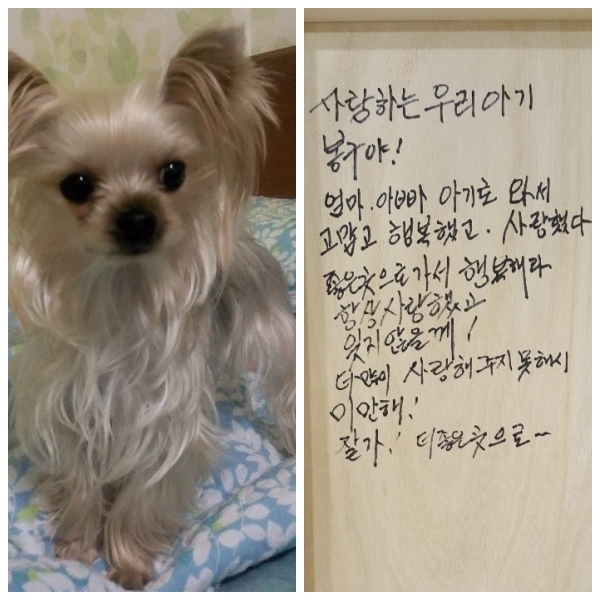 사랑하는 우리 아기
봉구야!
엄마. 아빠 아기로 와서
고맙고 행복했고. 사랑했다
좋은곳으로가서 행복해라
항상 사랑했고
잊지않을께!
더많이 사랑해주지못해서
미안해!
잘가! 더좋은곳으로~